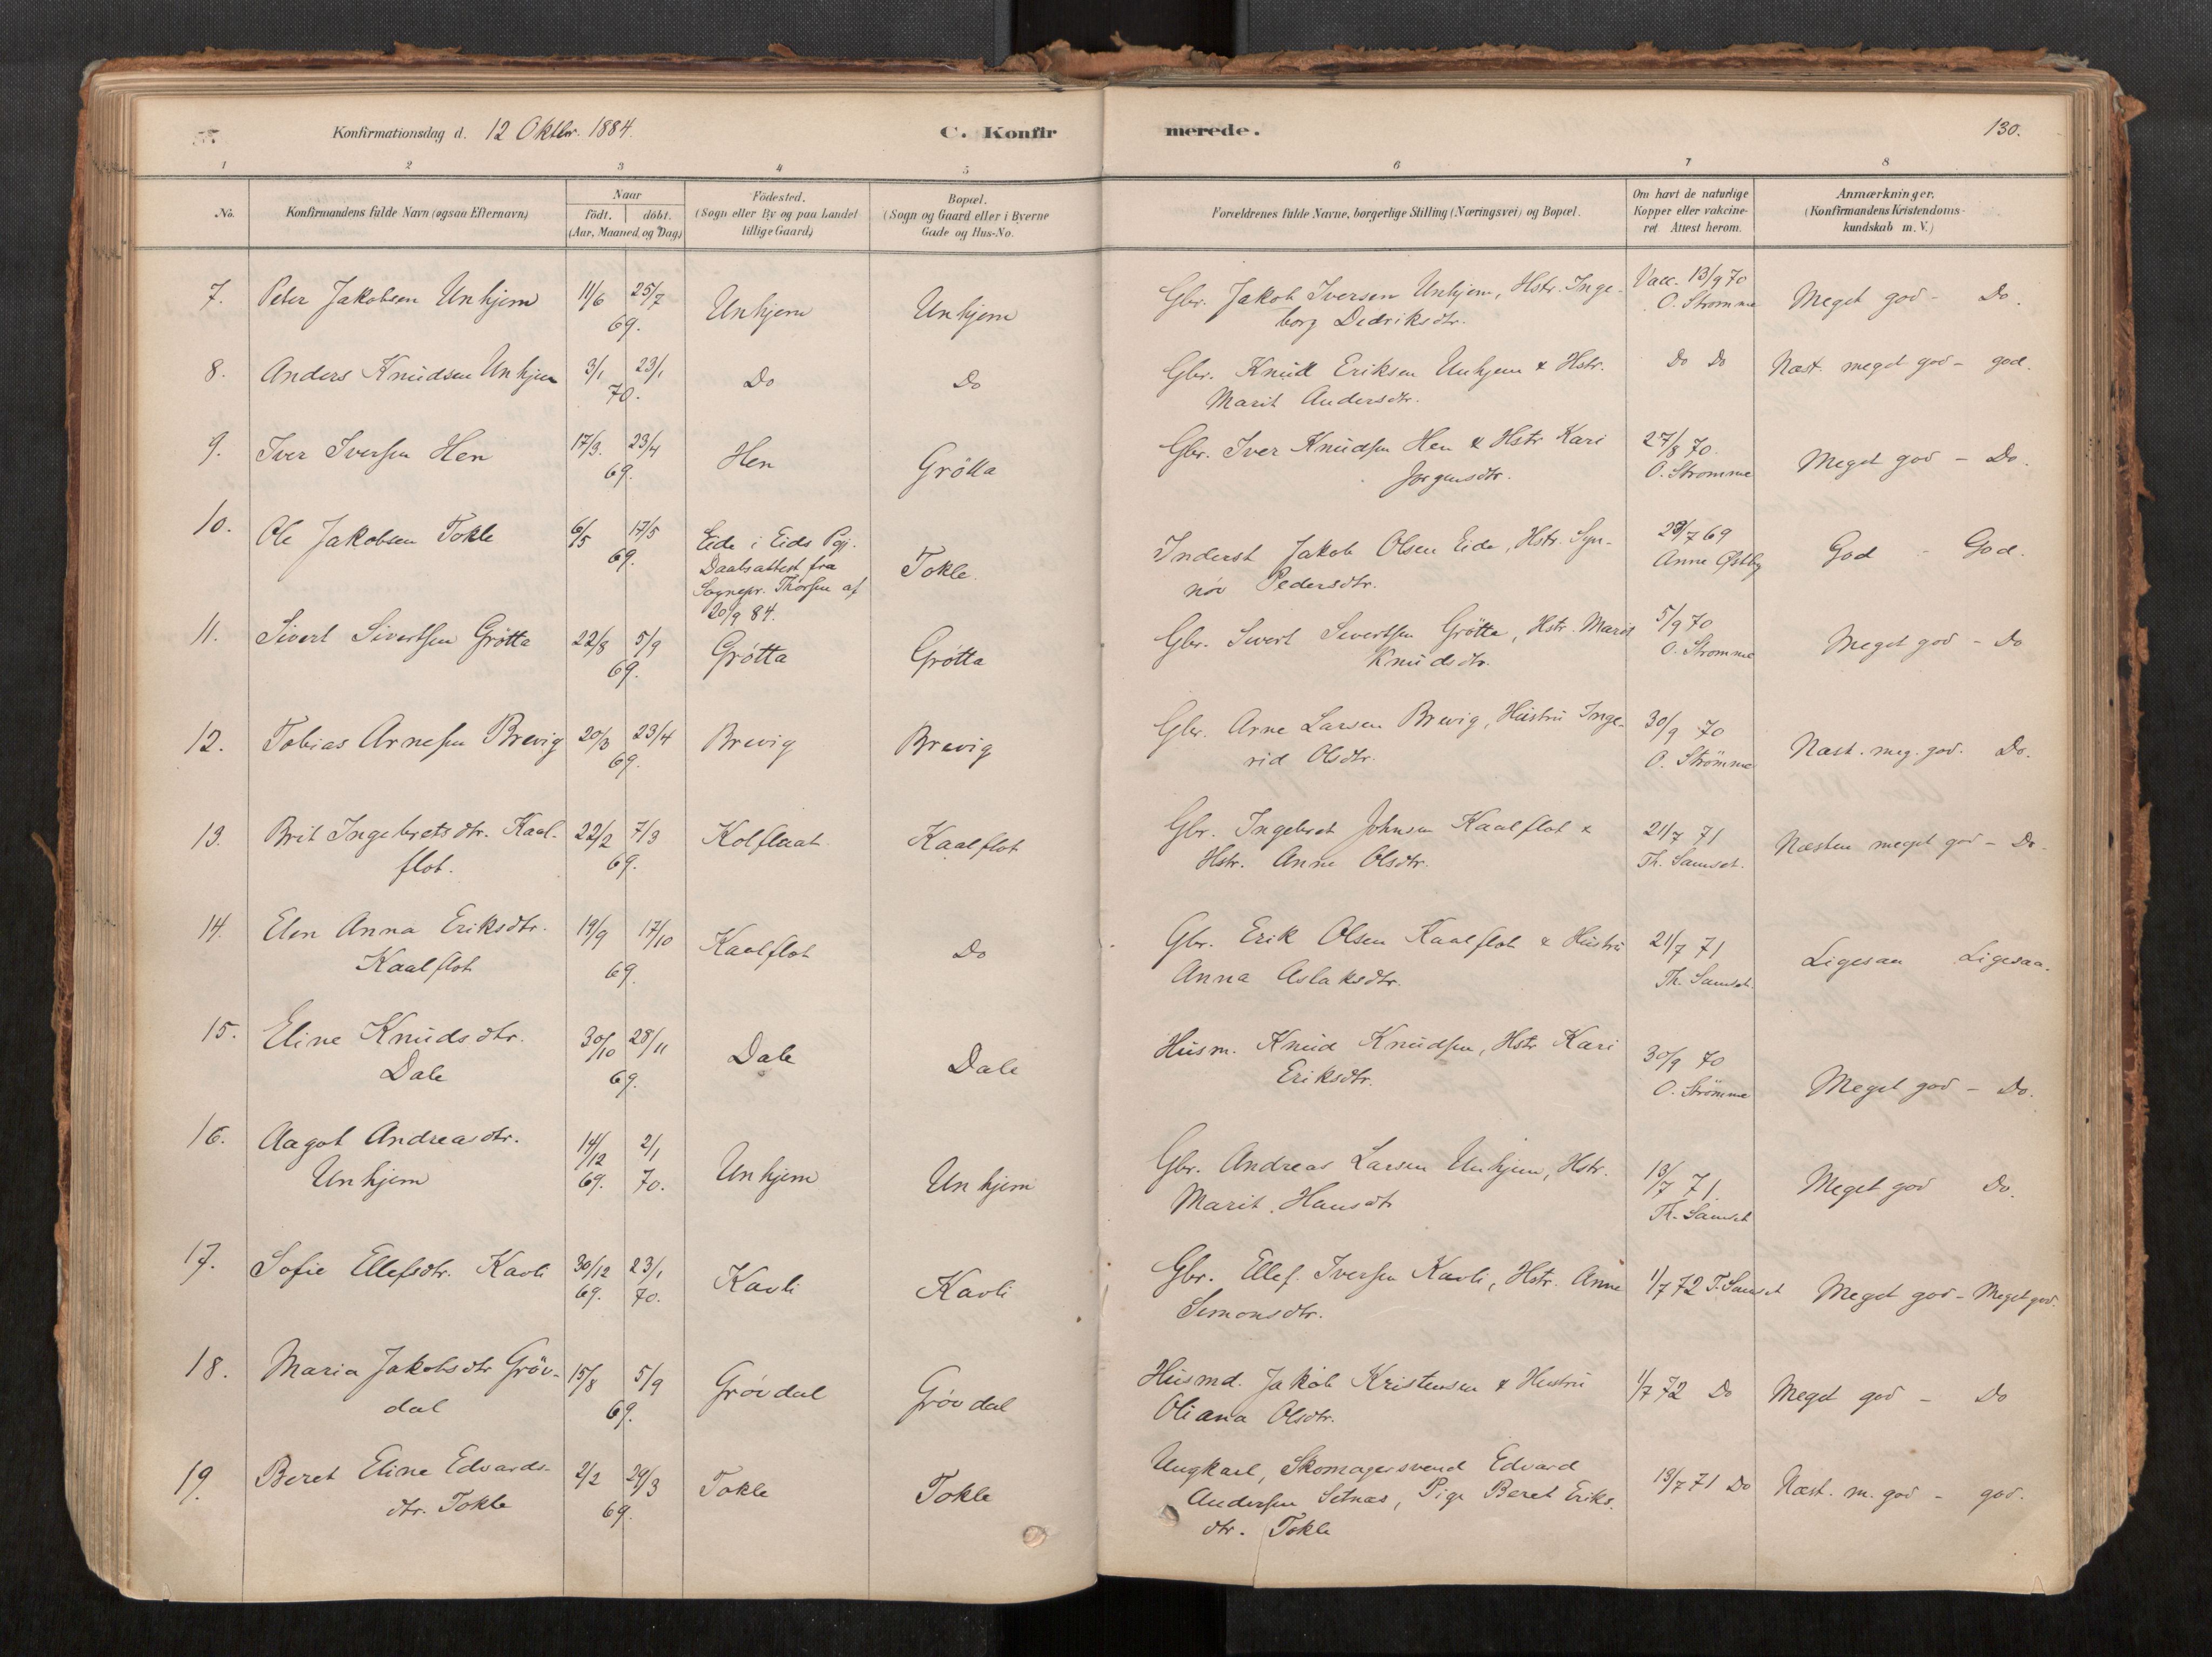 Konfirmationsdag d. 12 Oktbr. 1884.
C. Konfirmerede.
130.
1 2 3 4 5 6 7 8
No.
Konfirmandens fulde Navn (ogsaa Efternavn)
Naar
födt. | döbt.
(Aar, Maaned og Dag)
Födested.
(Sogn eller By og paa Landet
tillige Gaard)
Bopæl.
(Sogn og Gaard eller i Byerne
Gade og Hus-No.
Forældrenes fulde Navne, borgerlige Stilling (Næringsvei) og Bopæl.
Om havt de naturlige
Kopper eller vakcine-
ret. Attest herom.
Anmærkninger.
(Konfirmandens Kristendoms-
kundskab m. V.)
7. Peter Jakobsen Unhjem 11/6 25/7 Unhjem Unhjem Gbr. Jakob Iversen Unhjem, Hstr. Inge- Vacc. 13/9 70 Meget god - Do.
69. borg Dedriksdtr. O. Strømme
8. Anders Knudsen Unhjem 3/1 23/1 Do Do Gbr. Knud Eriksen Unhjem & Hstr. Do Do Næst. meget god - god.
70. Marit Andersdtr.
9. Iver Iversen Hen 17/3. 23/4 Hen Grötta Gbr. Iver Knudsen Hen & Hstr Kari 27/8 70. Meget god - Do.
69. Jørgensdtr. O. Strømme
10. Ole Jakobsen Tokle 6/5 17/5 Eide i Eids Pgj. Tokle. Inderst Jakob Olsen Eide, Hstr. Syn- 29/7 69 God - God.
69. Daabsattest fra növ Pedersdtr. Anne Østby
Sognepr. Thorsen af
20/9 84.
11. Sivert Sivertsen Grötta 22/8 5/9 Grötta Grötta Gbr. Sivert Sivertsen Grötta, Hstr. Marit 5/9 70 Meget god - Do
69. Knudsdtr. O. Strømme
12. Tobias Arnesen Brevig 20/3 23/4 Brevig Brevig Gbr. Arne Larsen Brevig, Hustru Inge- 30/9 70 Næst. meg. god. Do.
69. rid Olsdtr. O. Strömme
13. Brit Ingebretsdtr. Kaal- 22/2 7/3 Kolflaat Kaalflot Gbr. Ingebret Johnsen Kaalflot & 21/7 71 Næsten meget god - Do.
flot. 69. Hstr. Anne Olsdtr. Th. Samset.
14. Elen Anna Eriksdtr. 19/9 17/10 Kaalflot Do Gbr. Erik Olsen Kaalflot & Hustru 21/7 71 Ligesaa Ligesaa.
Kaalflot 69. Anna Aslaksdtr. Th. Samset.
15. Eline Knudsdtr. 30/10 28/11 Dale Dale Husm. Knud Knudsen, Hstr Kari 30/9 70 Meget god - Do.
Dale 69. Eriksdtr. O. Strömme
16. Aagot Andreasdtr. 14/12 2/1 Unhjem Unhjem Gbr. Andreas Larsen Unhjem, Hstr. 13/7 71. Meget god Do.
Unhjem 69. 70. Marit Hansdtr Th. Samset
17. Sofie Ellefsdtr. Kavli 30/12 23/1 Kavli Kavli Gbr. Ellef. Iversen Kavli, Hstr. Anne 1/7 72 T. Samset Meget god - Meget god.
69. 70. Simonsdtr.
18. Maria Jakobsdtr Gröv- 15/8 5/9 Grövdal Grövdal Husmd. Jakob Kristensen & Hustru 1/7 72 Do Meget god - Do
dal 69. Oliana Olsdtr.
19. Beret Eline Edvards- 2/2 29/3 Tokle Tokle Ungkarl, Skomagersvend Edvard 13/7 71 Do Næst. m. god - god.
dtr. Tokle 69. Andersen Setnæs, Pige Beret Eriks-
dtr. Tokle